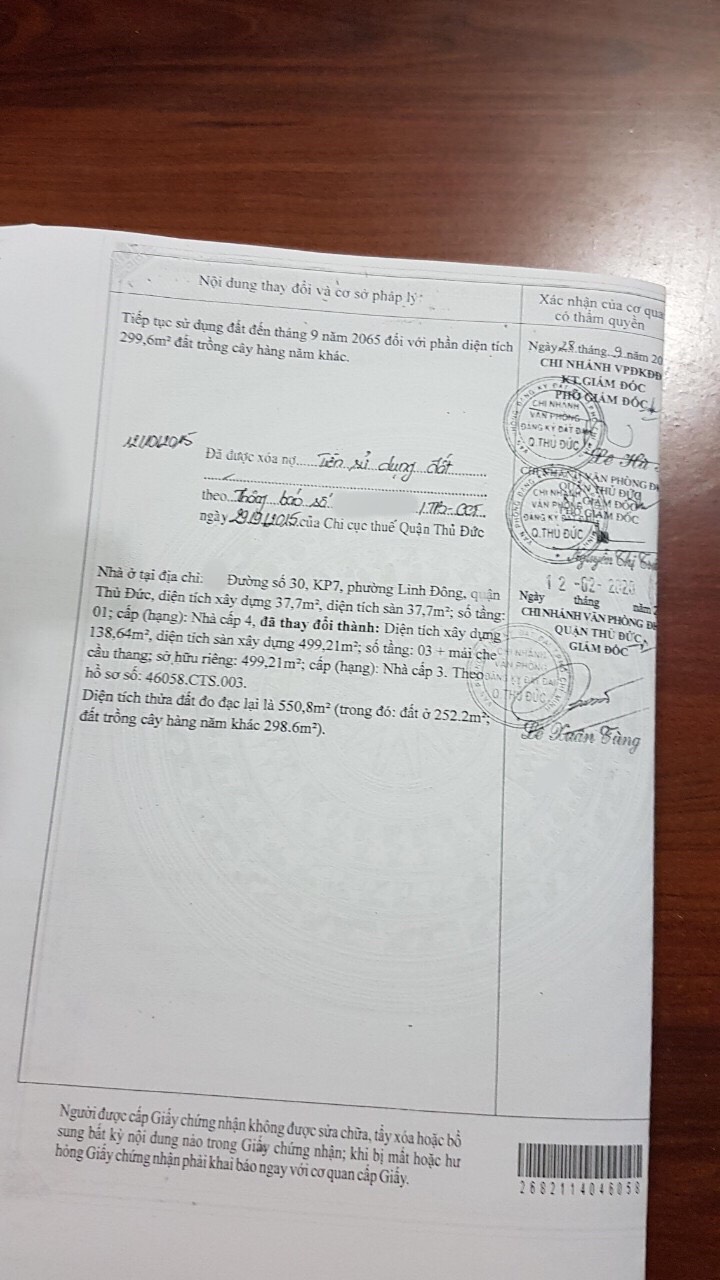 Nội dung thay đổi và cơ sở pháp lý
Xác nhận của cơ qua
có thẩm quyền
Tiếp tục sử dụng đất đến tháng 9 năm 2065 đối với phần diện tích
299,6m² đất trồng cây hàng năm khác.
Ngày 28 tháng 9 năm 20
CHI NHÁNH VPĐKĐĐ
KT.GIÁM ĐỐC
PHÓ GIÁM ĐỐC
CHI NHÁNH
VĂN PHÒNG
ĐĂNG KÝ ĐẤT ĐAI
Q.THỦ ĐỨC
12/10/2015
Đã được xóa nợ Tiền sử dụng đất
theo Thông báo số
ngày 29/9/2015 của Chi cục thuế Quận Thủ Đức
CHI NHÁNH VĂN PHÒNG Đ
QUẬN THỦ ĐỨC
KT. GIÁM ĐỐC
PHÓ GIÁM ĐỐC
CHI NHÁNH
VĂN PHÒNG
ĐĂNG KÝ ĐẤT ĐAI
Q.THỦ ĐỨC
Nguyễn Thị
Nhà ở tại địa chỉ: Đường số 30, KP7, phường Linh Đông, quận
Thủ Đức, diện tích xây dựng 37,7m², diện tích sàn 37,7m²; số tầng:
01; cấp (hạng): Nhà cấp 4, đã thay đổi thành: Diện tích xây dựng
138,64m², diện tích sàn xây dựng 499,21m²; số tầng: 03 + mái che
cầu thang; sở hữu riêng: 499,21m²; cấp (hạng): Nhà cấp 3. Theo
hồ sơ số: 46058.CTS.003.
Diện tích thửa đất đo đạc lại là 550,8m² (trong đó: đất ở 252.2m²;
đất trồng cây hàng năm khác 298.6m²).
12 -02- 2020
Ngày tháng năm
CHI NHÁNH VĂN PHÒNG Đ
QUẬN THỦ ĐỨC
GIÁM ĐỐC
CHI NHÁNH
VĂN PHÒNG
ĐĂNG KÝ ĐẤT ĐAI
Q.THỦ ĐỨC
Lê Xuân Tùng
Người được cấp Giấy chứng nhận không được sửa chữa, tẩy xóa hoặc bổ
sung bất kỳ nội dung nào trong Giấy chứng nhận; khi bị mất hoặc hư
hỏng Giấy chứng nhận phải khai báo ngay với cơ quan cấp Giấy.
2682114046058